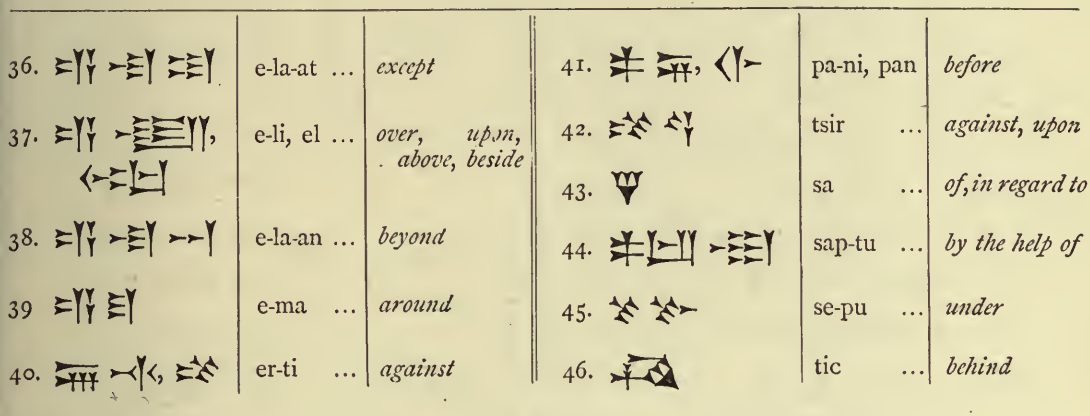 36. 𒂊 𒆷 𒀜 e-la-at ... except
37. 𒂊 𒇷, e-li, el ... over, upon,
𒂖 above, beside
38. 𒂊 𒆷 𒀭 e-la-an ... beyond
39 𒂊 𒈠 e-ma ... around
40. 𒅕 𒋾, er-ti ... against
41. 𒉺 𒉌, 𒅆 pa-ni, pan before
42. tsir ... against, upon
43. 𒃻 sa ... of, in regard to
44. 𒌅 sap-tu ... by the help of
45. 𒊺 𒁍 se-pu ... under
46. 𒄘 tic ... behind